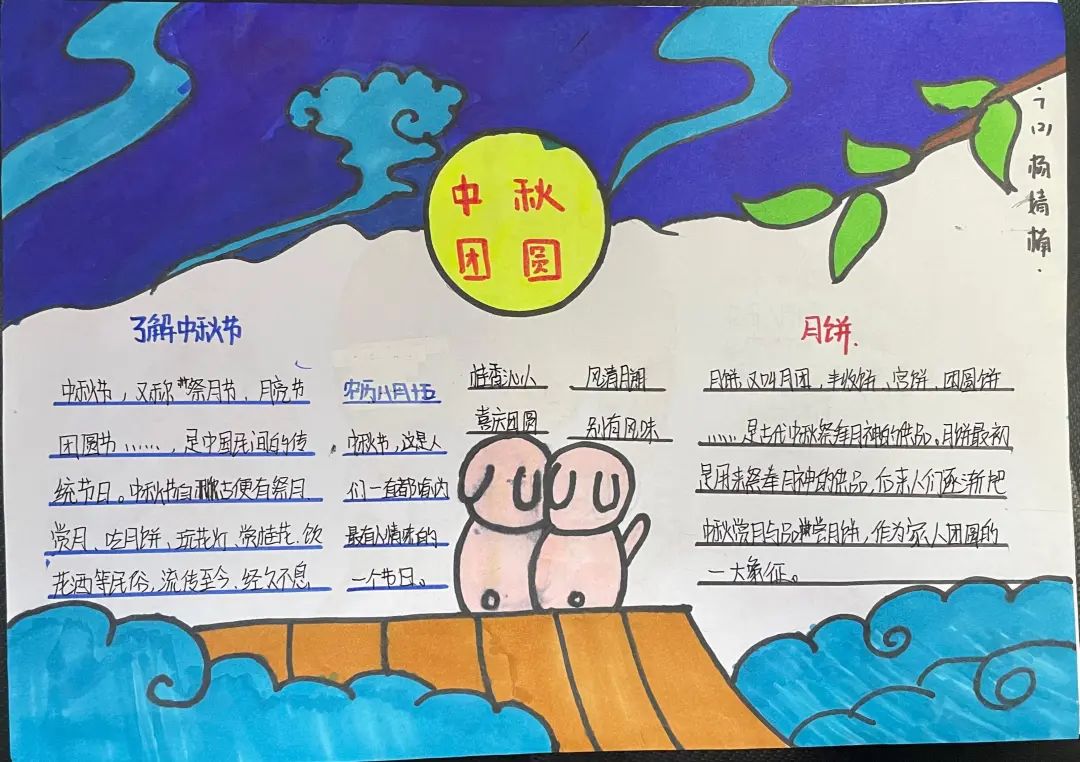 中秋
团圆
了解中秋节
中秋节，又称“祭月节、月亮节
团圆节……，是中国民间的传
统节日。中秋节自秋古便有祭月、
赏月、吃月饼、玩花灯、赏桂花、饮
花酒等民俗，流传至今、经久不息
中历八月十五
中秋节，这是人
们一直都看内
最有人情味的
一个节日。
桂香沁人
风清月朗
喜庆团圆
别有风味
月饼
月饼又叫月团，丰收饼、宫饼、团圆饼
……是古代中秋祭奉月神的供品。月饼最初
是用来祭奉月神的供品，后来人们逐渐把
中秋赏月与品尝月饼，作为家人团圆的
一大象征。
杨婧楠